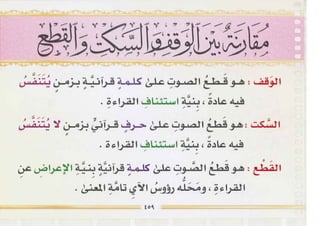 مُقَارَنَةٌ بَيْنَ الْوَقْفِ وَالسَّكْتِ وَالْقَطْعِ
الوَقف : هـو قَـطعُ الصوتِ علىٰ كلمـةٍ قـرآنيَّـةٍ بـزمـنٍ يُتَنَفَّسُ
فيه عادةً ، بِنِيَّةِ استئنافِ القراءةِ .
السَّكت : هـو قَـطعُ الصوتِ علىٰ حـرفٍ قـرآنيٍّ بزمنٍ لا يُتَنَفَّسُ
فيه عادةً ، بِنِيَّةِ استئنافِ القراءة .
القَطْع : هـو قَطعُ الصَّـوتِ علىٰ كلمـةٍ قرآنيَّةٍ بِنِيَّـةِ الإعراضِ عنِ
القراءةِ ، ومَحَلُّـه رؤوسُ الآيِ تامَّـةِ المعنىٰ .
٤٥٩